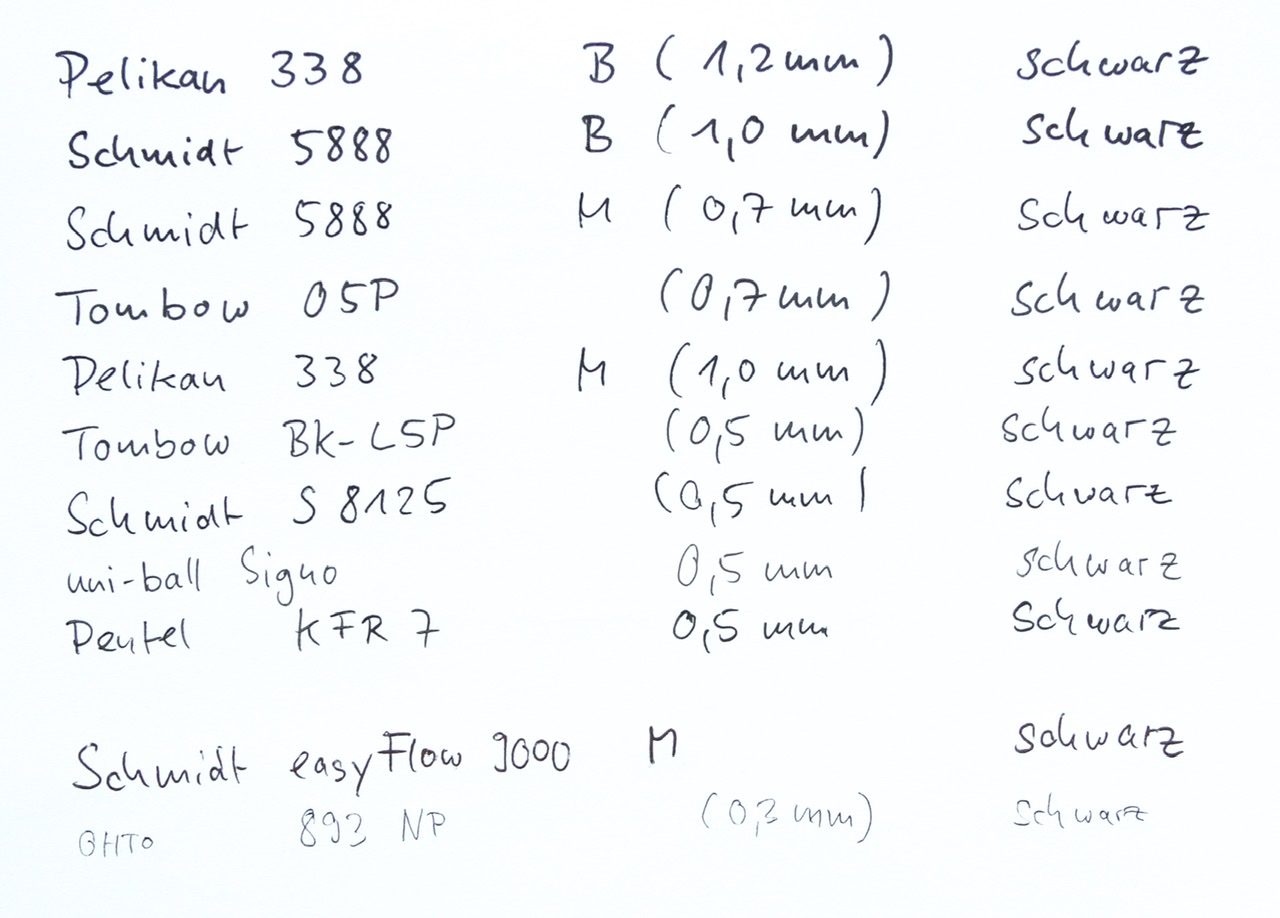 Pelikan 338 B (1,2mm) schwarz
Schmidt 5888 B (1,0 mm) schwarz
Schmidt 5888 M (0,7 mm) Schwarz
Tombow 05P (0,7mm) Schwarz
Pelikan 338 M (1,0 mm) schwarz
Tombow BK-L5P (0,5 mm) schwarz
Schmidt S 8125 (0,5 mm) Schwarz
uni-ball Signo 0,5 mm schwarz
Pentel KFR 7 0,5 mm Schwarz
Schmidt easyFlow 9000 M schwarz
OHTO 893 NP (0,3 mm) Schwarz